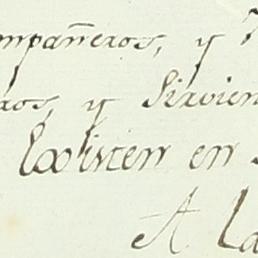 mpañeros, y
ros, y Sirvien
Existen en
A la